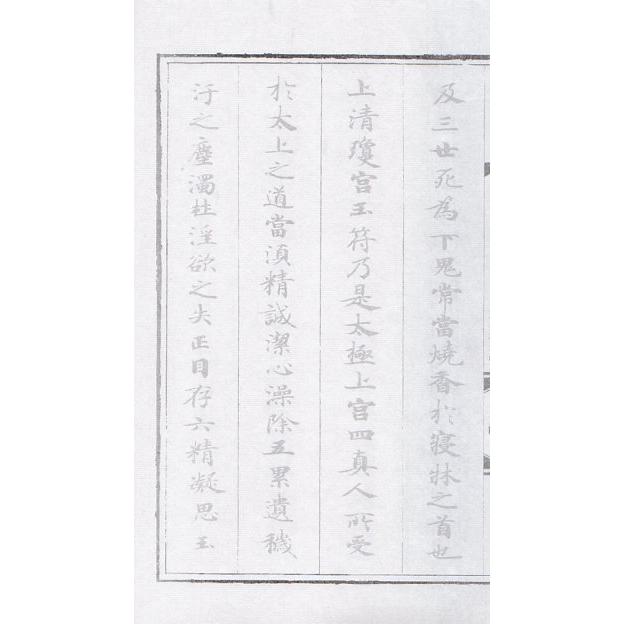 及三世死為下鬼常當燒香於寢牀之首也
上清瓊宮玉符乃是太極上宮四真人所受
於太上之道當須精誠潔心澡除五累遺穢
汙之塵濁杜淫欲之失正目存六精凝思玉